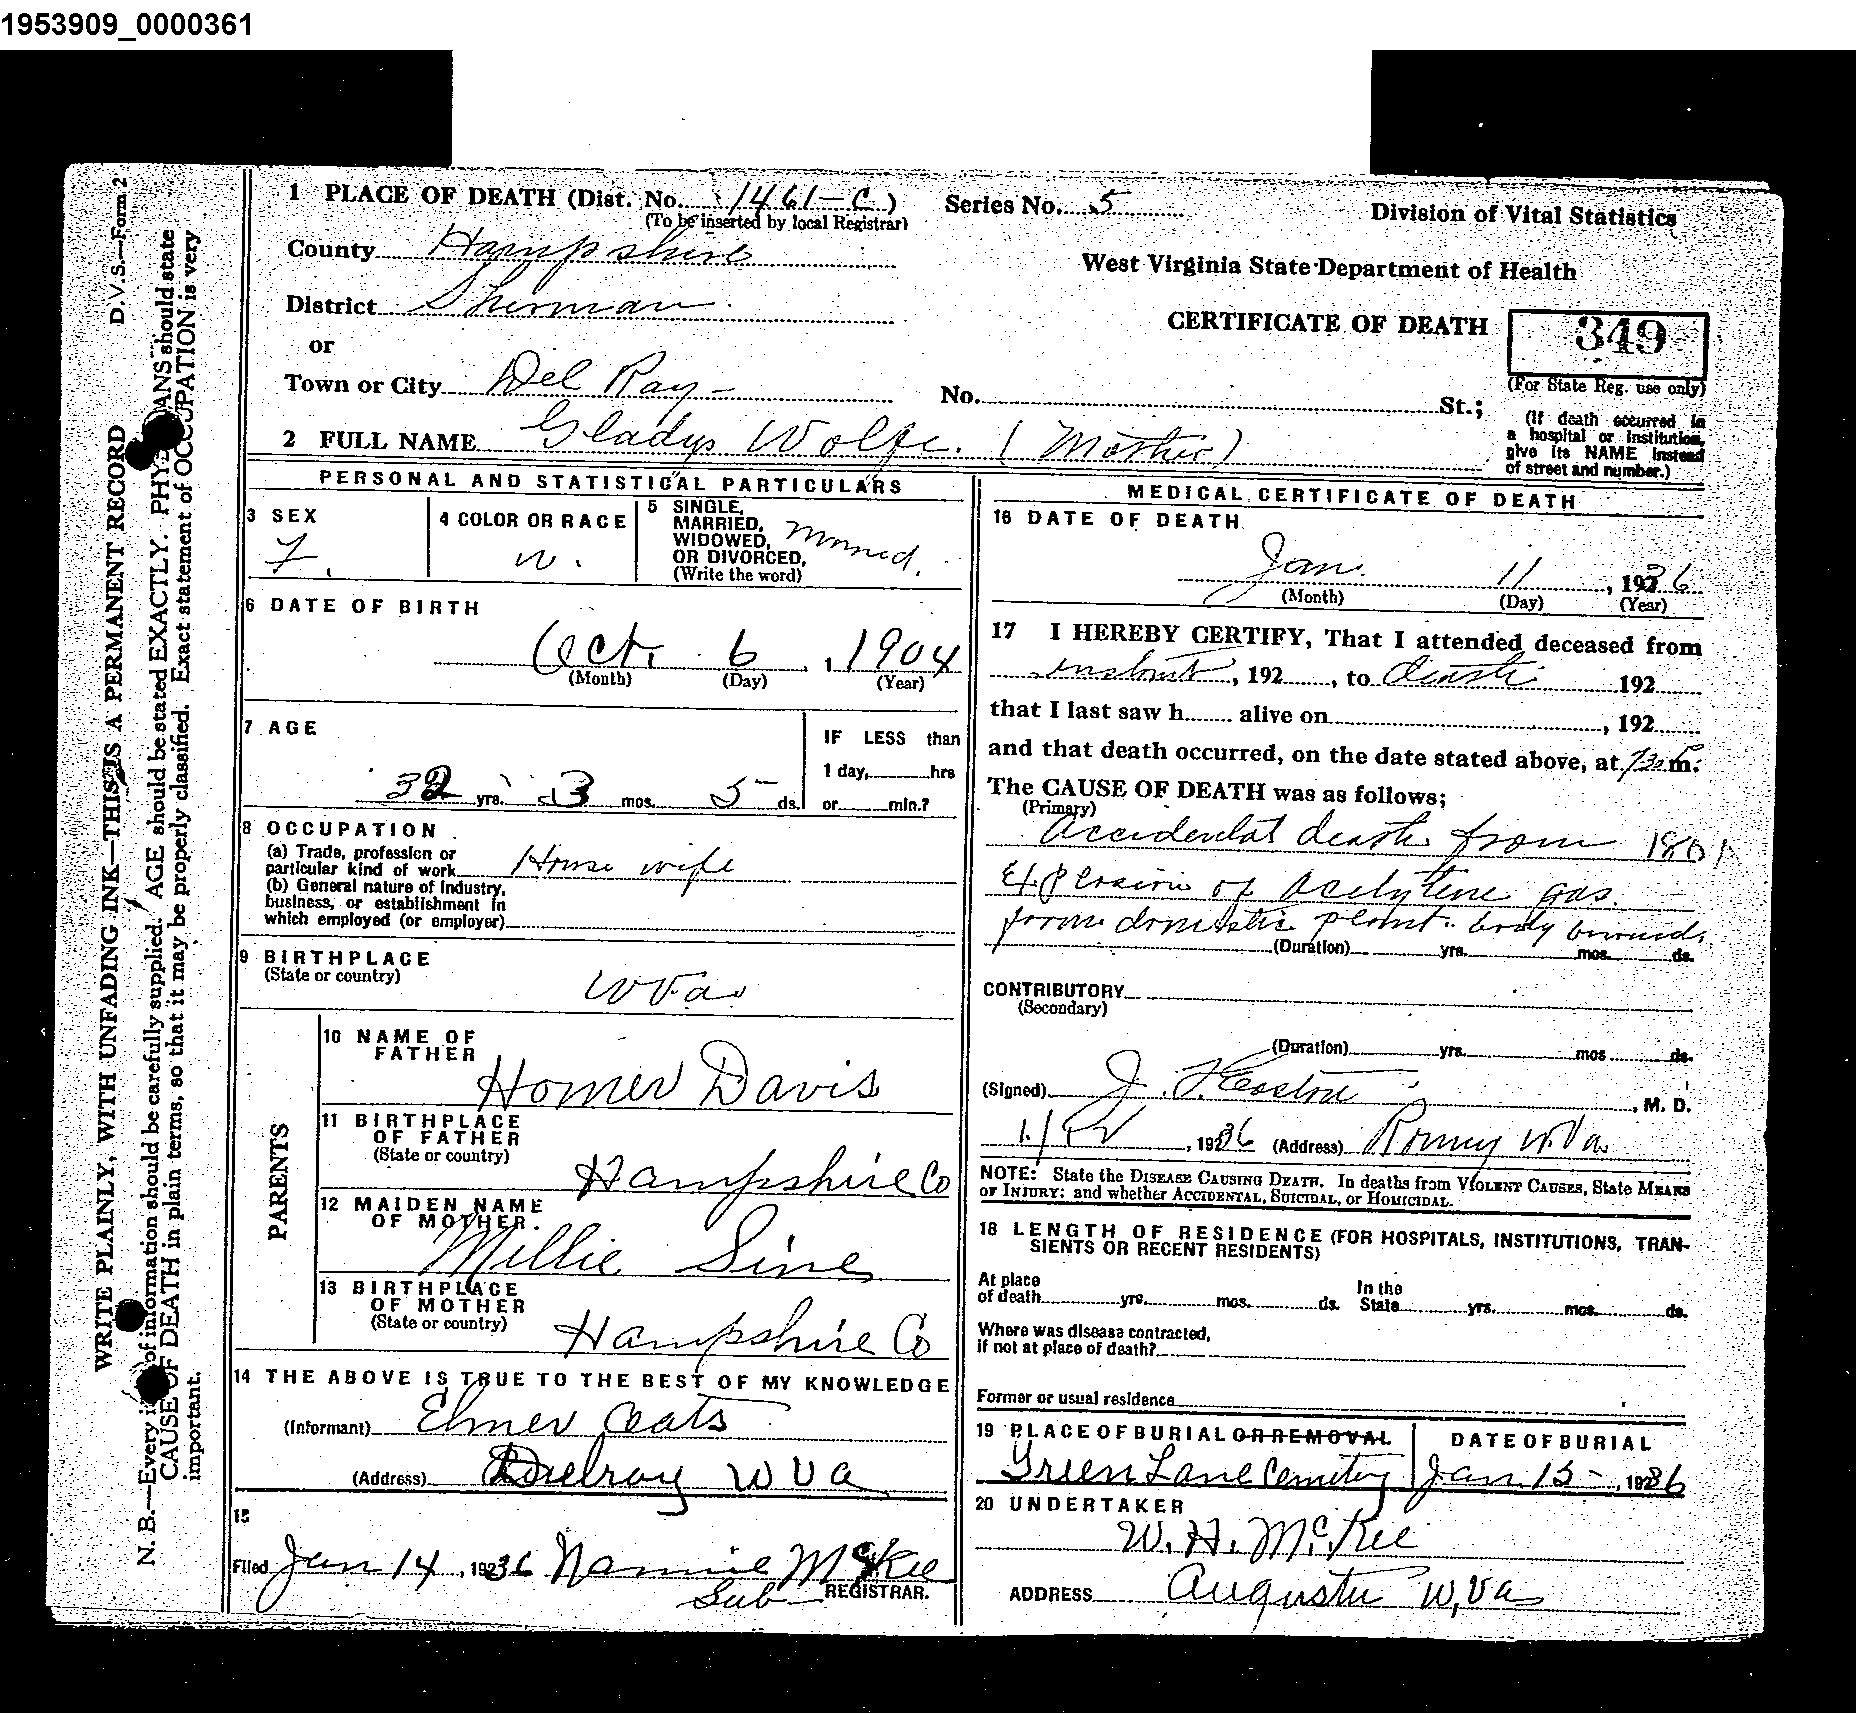 1953909_0000361
D.V.S.—Form 2
WRITE PLAINLY, WITH UNFADING INK—THIS IS A PERMANENT RECORD
N. B.—Every of information should be carefully supplied. AGE should be stated EXACTLY. PHYSICIANS should state
CAUSE OF DEATH in plain terms, so that it may be properly classified. Exact statement of OCCUPATION is very
important.
1 PLACE OF DEATH (Dist. No. 1461-C) Series No. 5 Division of Vital Statistics
(To be inserted by local Registrar)
County Hampshire
West Virginia State Department of Health
District Sherman
CERTIFICATE OF DEATH 349
or
(For State Reg. use only)
Town or City Del Ray No. St.;
(If death occurred in
a hospital or institution,
give its NAME instead
of street and number.)
2 FULL NAME Gladys Wolfe. (Mother)
PERSONAL AND STATISTICAL PARTICULARS
3 SEX
F.
4 COLOR OR RACE
W.
5 SINGLE,
MARRIED,
WIDOWED,
OR DIVORCED,
(Write the word)
Married.
6 DATE OF BIRTH
Oct. 6, 1904
(Month) (Day) (Year)
7 AGE
32 yrs. 3 mos. 5 ds.
IF LESS than
1 day, hrs
or min.?
8 OCCUPATION
(a) Trade, profession or
particular kind of work House wife
(b) General nature of industry,
business, or establishment in
which employed (or employer)
9 BIRTHPLACE
(State or country)
W Va.
PARENTS
10 NAME OF
FATHER
Homer Davis
11 BIRTHPLACE
OF FATHER
(State or country)
Hampshire Co
12 MAIDEN NAME
OF MOTHER.
Millie Sine
13 BIRTHPLACE
OF MOTHER
(State or country)
Hampshire Co
14 THE ABOVE IS TRUE TO THE BEST OF MY KNOWLEDGE
(Informant) Elmer Oats
(Address) Delray W Va
15
Filed Jan 14, 1936 Nannie McKee
Sub- REGISTRAR.
MEDICAL CERTIFICATE OF DEATH
16 DATE OF DEATH
Jan. 11, 1936
(Month) (Day) (Year)
17 I HEREBY CERTIFY, That I attended deceased from
instant, 192, to death 192
that I last saw h alive on , 192
and that death occurred, on the date stated above, at m.
The CAUSE OF DEATH was as follows;
(Primary)
Accidental death from
Explosion of Acetylene gas.
from domestic plant. body burned.
(Duration) yrs. mos. ds.
CONTRIBUTORY
(Secondary)
(Duration) yrs. mos ds.
(Signed) J. , M. D.
, 1936 (Address) Romney W. Va.
NOTE: State the DISEASE CAUSING DEATH. In deaths from VIOLENT CAUSES, State MEANS
OF INJURY; and whether ACCIDENTAL, SUICIDAL, or HOMICIDAL.
18 LENGTH OF RESIDENCE (FOR HOSPITALS, INSTITUTIONS, TRAN-
SIENTS OR RECENT RESIDENTS)
At place
of death yrs. mos. ds.
In the
State yrs. mos. ds.
Where was disease contracted,
if not at place of death?
Former or usual residence
19 PLACE OF BURIAL OR REMOVAL
Green Lane Cemetery
DATE OF BURIAL
Jan 13-, 1936
20 UNDERTAKER
W. H. McKee
ADDRESS Augusta W, Va